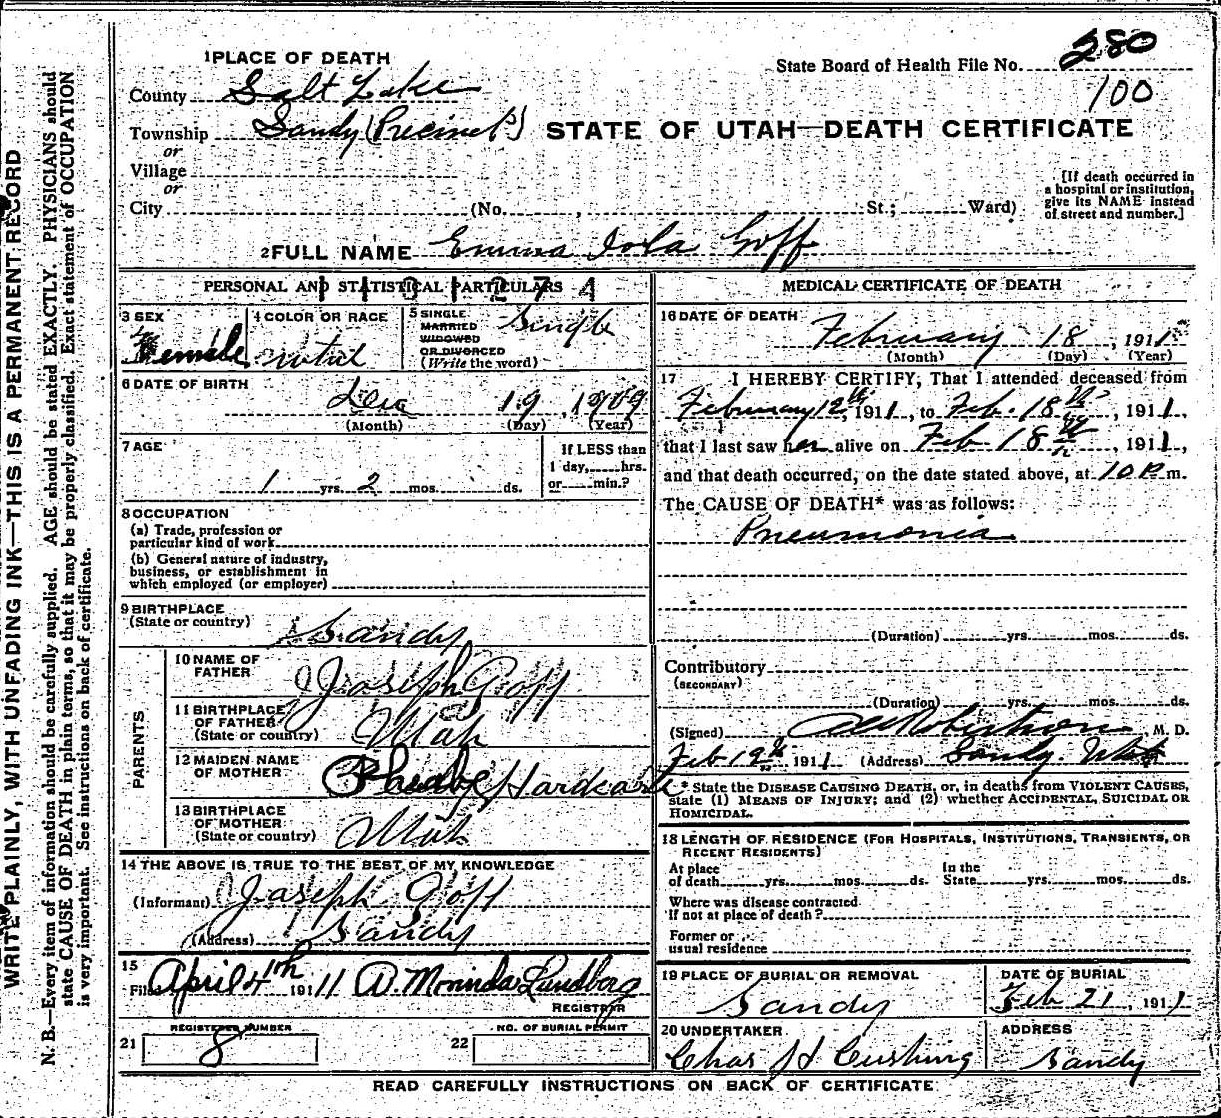 1 PLACE OF DEATH
State Board of Health File No. 280
County Salt Lake
100
Township Sandy (Precinct)
STATE OF UTAH—DEATH CERTIFICATE
or
Village
or
City (No. , St.; Ward)
[If death occurred in
a hospital or institution,
give its NAME instead
of street and number.]
2 FULL NAME Emma Iola Goff
PERSONAL AND STATISTICAL PARTICULARS
3 SEX
Female
4 COLOR OR RACE
5 SINGLE
MARRIED
WIDOWED
OR DIVORCED
(Write the word)
Single
6 DATE OF BIRTH
Dec 19, 1909
(Month) (Day) (Year)
7 AGE
1 yrs. 2 mos. ds.
If LESS than
1 day, hrs.
or min.?
8 OCCUPATION
(a) Trade, profession or
particular kind of work
(b) General nature of industry,
business, or establishment in
which employed (or employer)
9 BIRTHPLACE
(State or country)
Sandy
PARENTS
10 NAME OF
FATHER
Joseph Goff
11 BIRTHPLACE
OF FATHER
(State or country)
Utah
12 MAIDEN NAME
OF MOTHER
Pheabe Hardcastle
13 BIRTHPLACE
OF MOTHER
(State or country)
Utah
14 THE ABOVE IS TRUE TO THE BEST OF MY KNOWLEDGE
(Informant) Joseph Goff
(Address) Sandy
15
Filed April 4th 1911 A. Morinda Lundberg
REGISTRAR
REGISTERED NUMBER
21 8
NO. OF BURIAL PERMIT
22
MEDICAL CERTIFICATE OF DEATH
16 DATE OF DEATH
February 18, 1911
(Month) (Day) (Year)
17 I HEREBY CERTIFY, That I attended deceased from
February 12th, 1911, to Feb. 18th, 1911,
that I last saw her alive on Feb 18th, 1911,
and that death occurred, on the date stated above, at 10 P m.
The CAUSE OF DEATH* was as follows:
Pneumonia
(Duration) yrs. mos. ds.
Contributory
(SECONDARY)
(Duration) yrs. mos. ds.
(Signed) Robertson M. D.
Feb 19th, 1911 (Address) Sandy. Utah
* State the DISEASE CAUSING DEATH, or, in deaths from VIOLENT CAUSES,
state (1) MEANS OF INJURY; and (2) whether ACCIDENTAL, SUICIDAL OR
HOMICIDAL.
18 LENGTH OF RESIDENCE (FOR HOSPITALS, INSTITUTIONS, TRANSIENTS, OR
RECENT RESIDENTS)
At place
of death yrs. mos. ds.
In the
State yrs. mos. ds.
Where was disease contracted
if not at place of death?
Former or
usual residence
19 PLACE OF BURIAL OR REMOVAL
Sandy
DATE OF BURIAL
Feb 21, 1911
20 UNDERTAKER
Chas H Cushing
ADDRESS
Sandy
READ CAREFULLY INSTRUCTIONS ON BACK OF CERTIFICATE
WRITE PLAINLY, WITH UNFADING INK—THIS IS A PERMANENT RECORD
N. B.—Every item of information should be carefully supplied. AGE should be stated EXACTLY. PHYSICIANS should
state CAUSE OF DEATH in plain terms, so that it may be properly classified. Exact statement of OCCUPATION
is very important. See instructions on back of certificate.